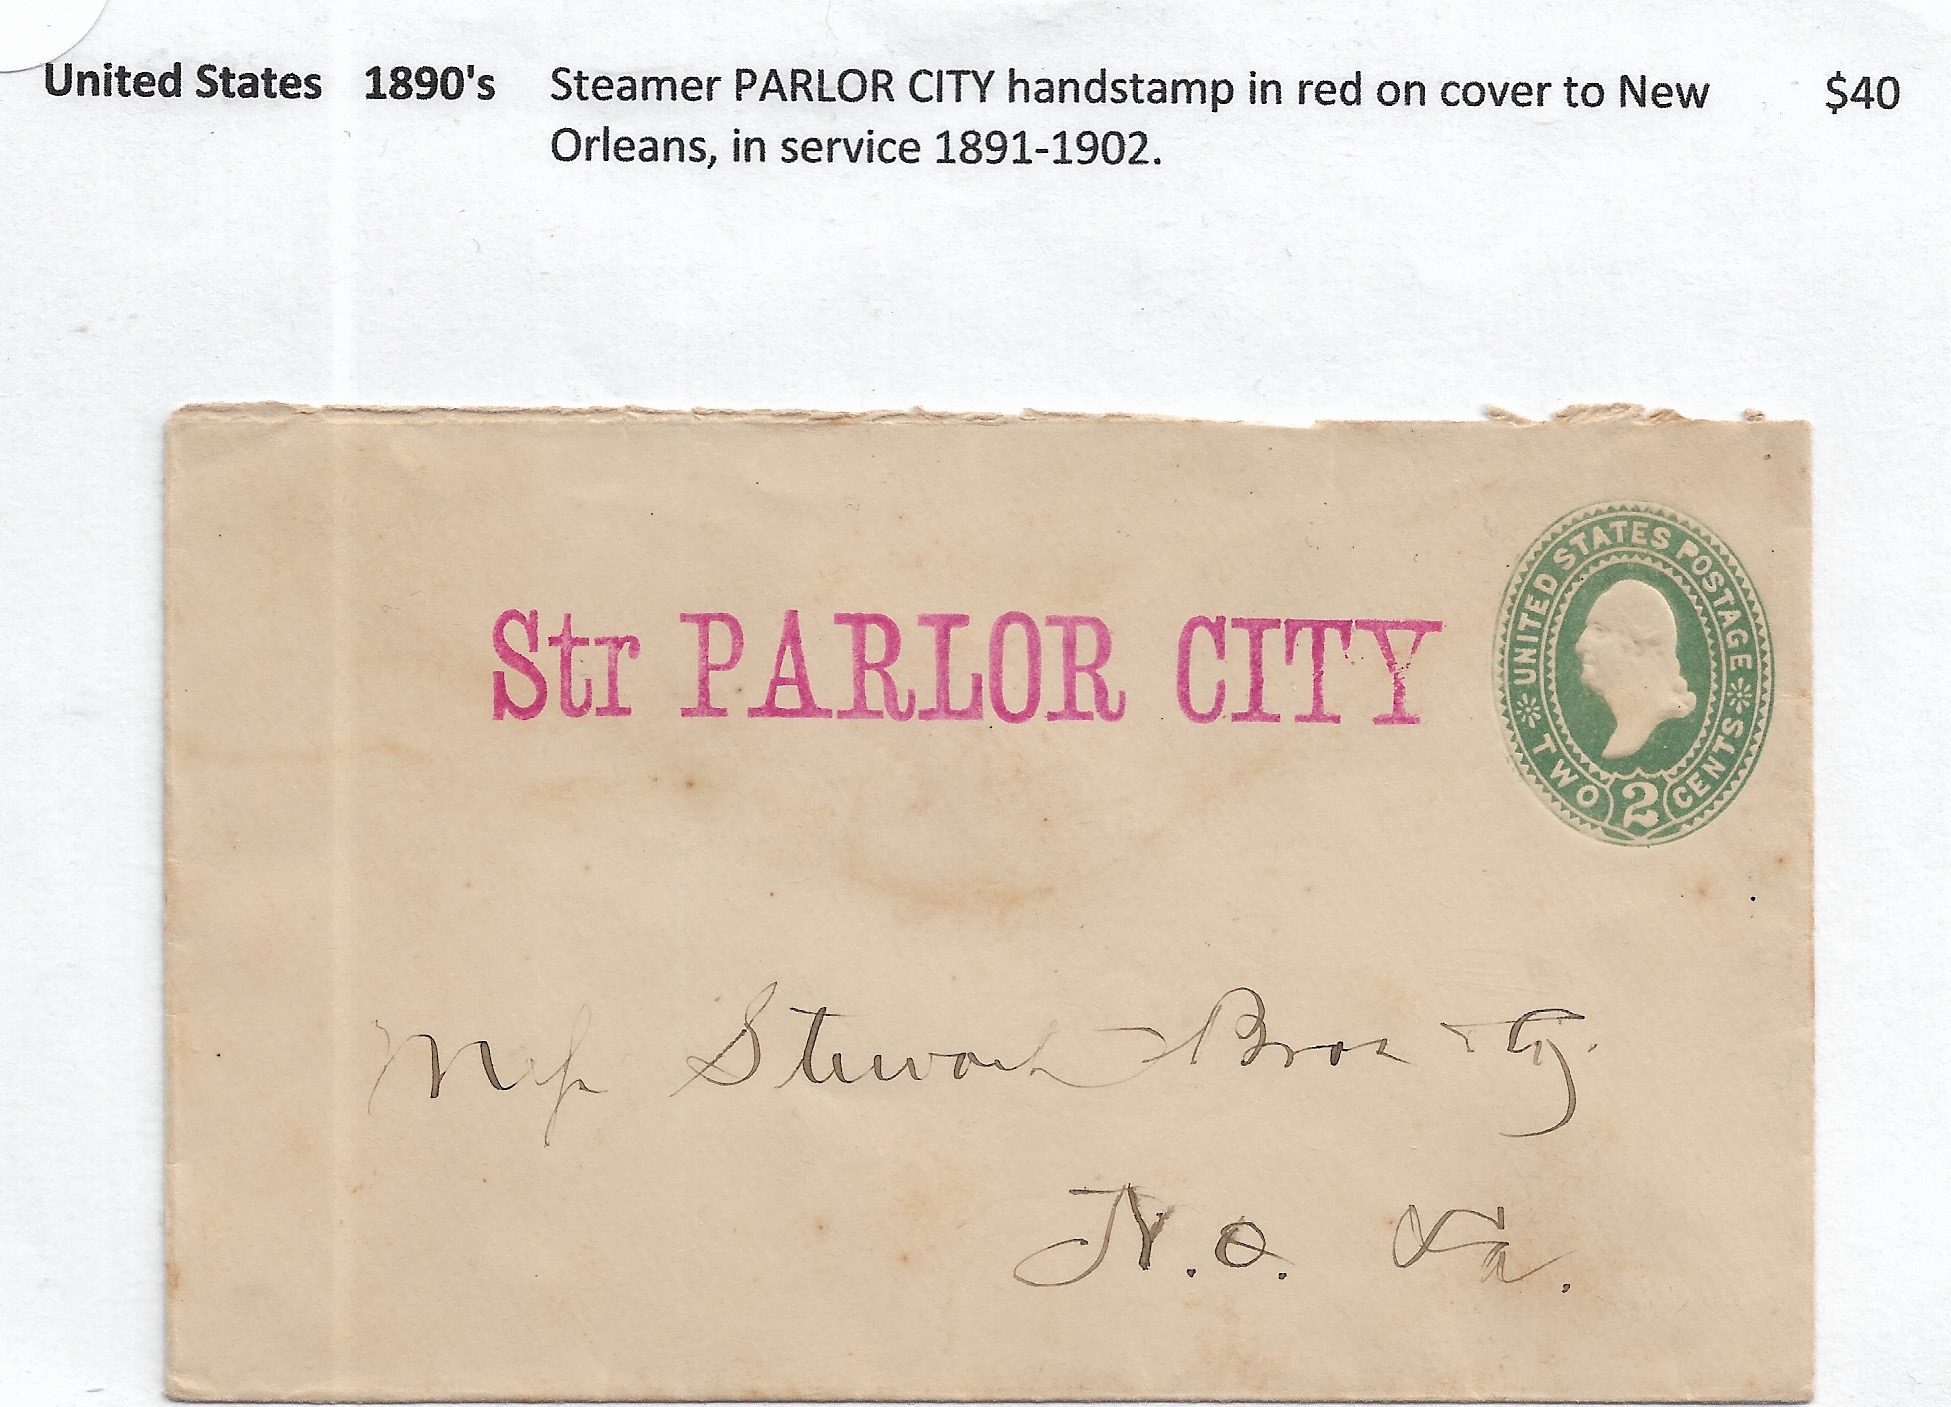 United States 1890's Steamer PARLOR CITY handstamp in red on cover to New $40
Orleans, in service 1891-1902.
Str PARLOR CITY
UNITED STATES POSTAGE
TWO 2 CENTS
Stewart Bros & Co.
N.O. La.